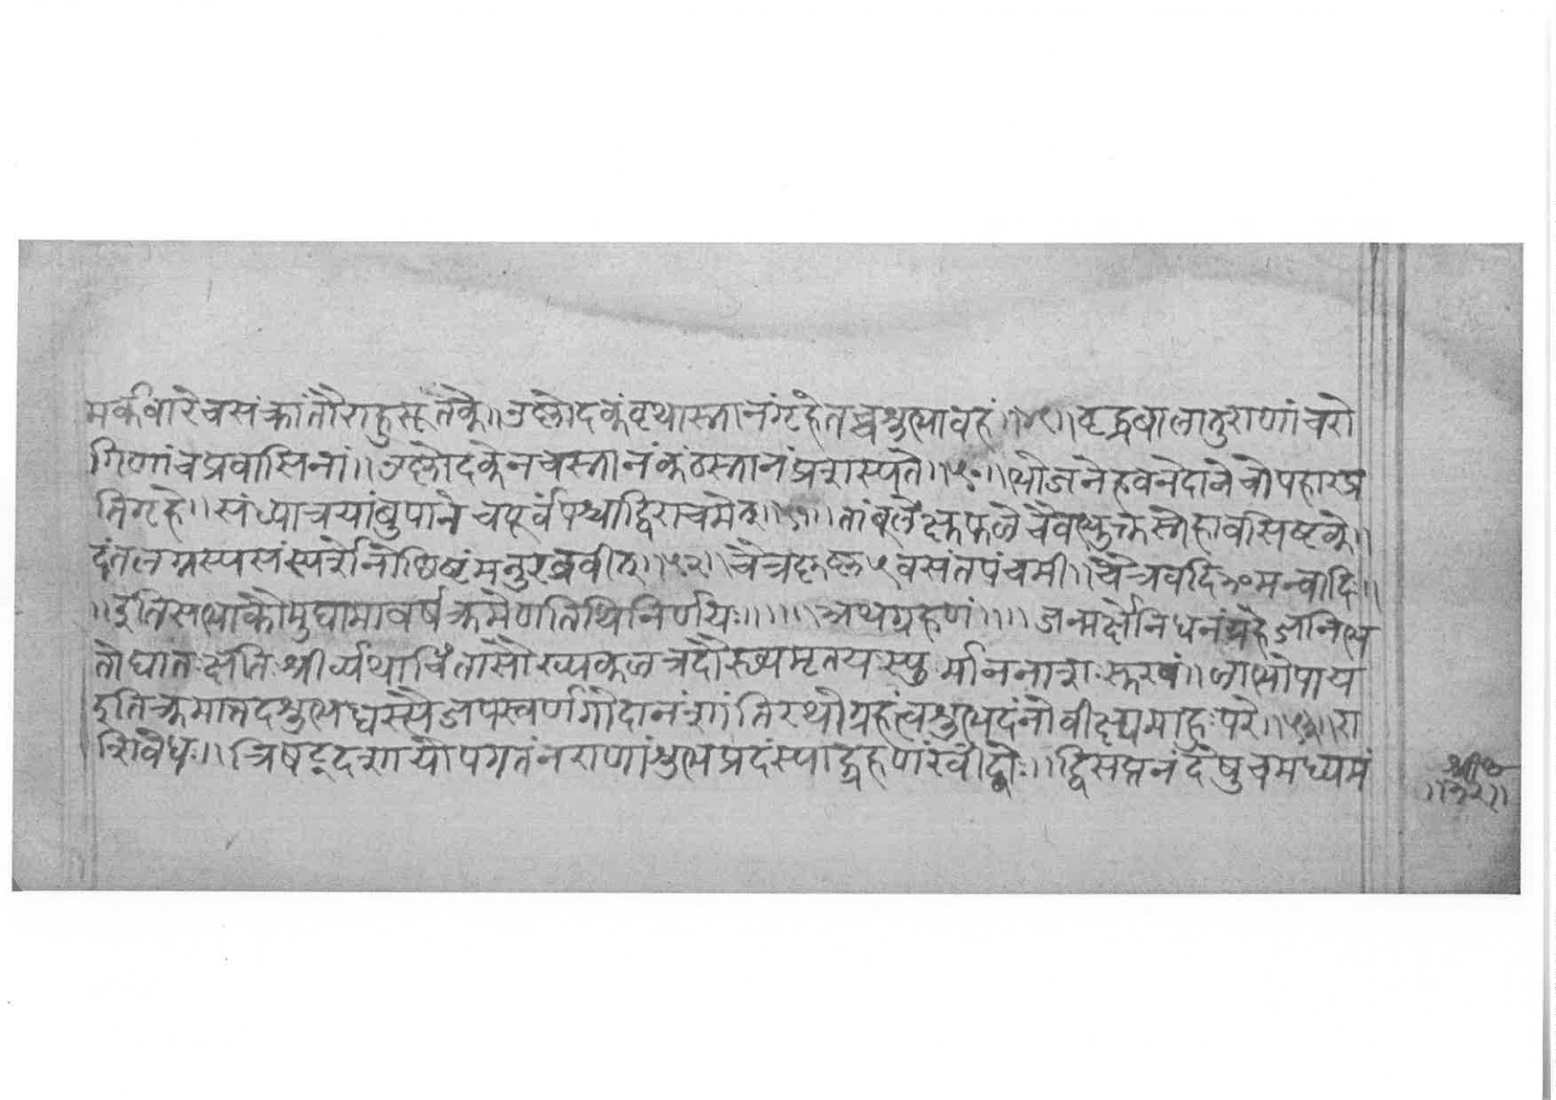 मर्कवारेचसंक्रांतौराहुसूतके॥उष्णोदकंवृथास्नानंगृहेतच्चमृत्यावहं॥४९॥वृद्धबालातुराणांचरो
गिणांचप्रवासिनां॥उष्णोदकेनचस्नानंकंठस्नानंप्रशस्यते॥५०॥भोजनेहवनेदानेचोपहारप्र
तिगृहे॥संध्यात्रयांबुपानेचपूर्वंपश्चाद्विराचमेत्॥५१॥तांबूलेक्षुफलेचैवभुक्तस्नेहावसिष्टके॥
दंतलग्नस्यसंस्पर्शेनोछिष्टंमनुरब्रवीत्॥५२॥चैत्रकृष्ण५वसंतपंचमी॥चैत्रवदि३०मन्वादि॥
॥इति मावर्षक्रमेणतिथिनिर्णयः॥॥॥अथग्रहणं॥॥जन्मर्क्षेनिधनंग्रहेजनिभ्य
तोघातःक्षतिःश्रीर्व्यथाचिंतासौख्यकलत्रदौस्थ्यमृतयःस्युर्माननाशःसुखं॥लाभोपाय
इतिक्रमात्तदशुभध्वस्त्यैजपस्वर्णगोदानंशांतिरथोग्रहंत्वशुभदंनोवीक्ष्यमाहुःपरे॥५३॥रा
शिवेधः॥त्रिषट्दशायोपगतंनराणांशुभप्रदंस्याद्ग्रहणंरवींद्वोः॥द्विसप्तनंदेषुचमध्यमं
॥३२॥